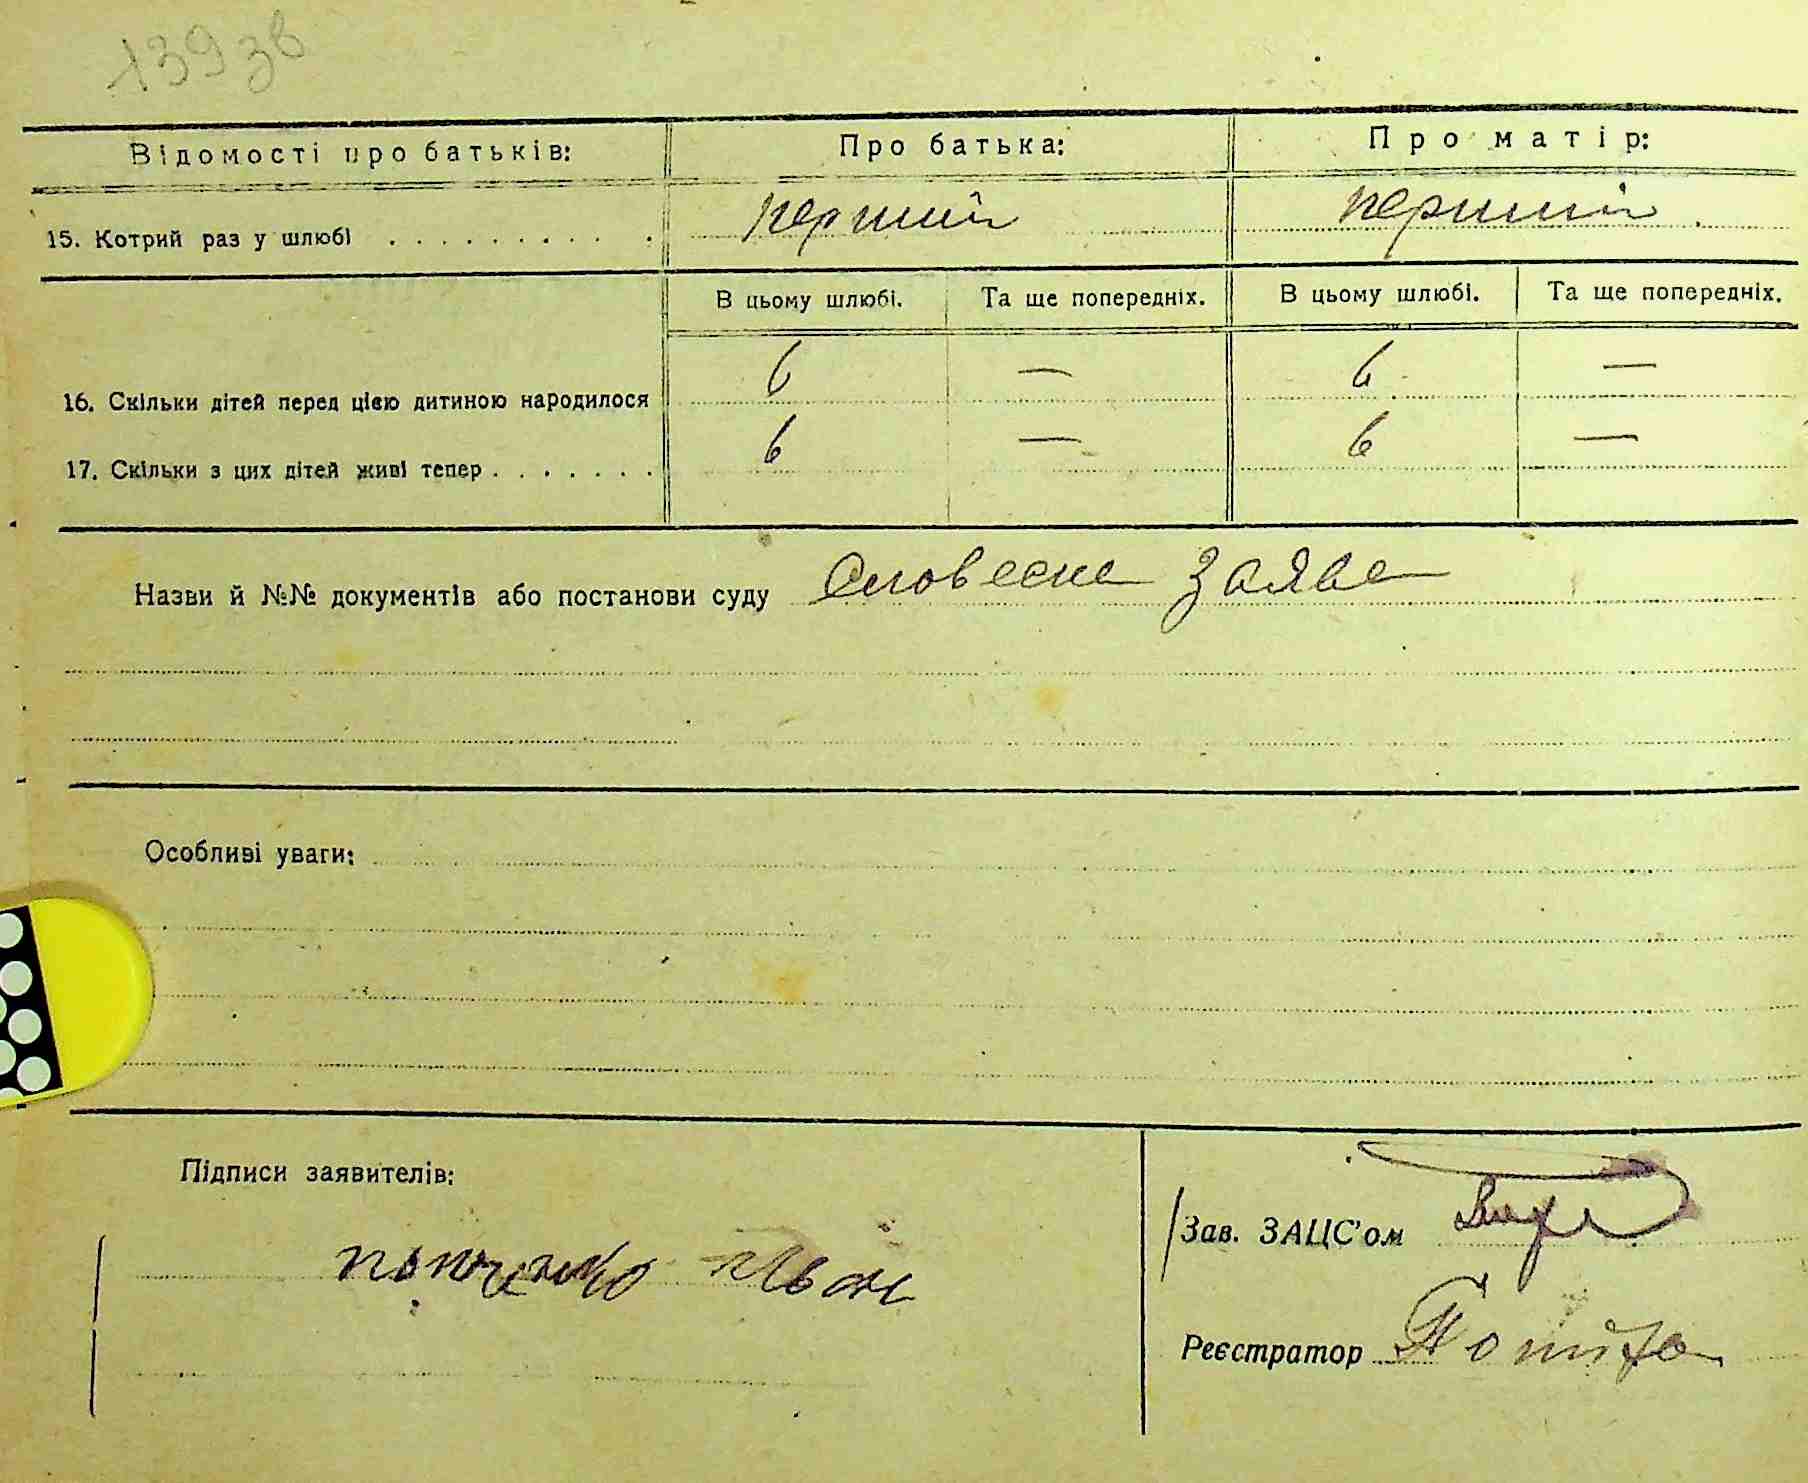 139 зв
Відомості про батьків: Про батька: Про матір:
15. Котрий раз у шлюбі . . . . . . . . . . перший перший
В цьому шлюбі. Та ще попередніх. В цьому шлюбі. Та ще попередніх.
16. Скільки дітей перед цією дитиною народилося 6 — 6 —
17. Скільки з цих дітей живі тепер . . . . . . . 6 — 6 —
Назви й №№ документів або постанови суду Словесна заява
Особливі уваги:
Підписи заявителів:
Зав. ЗАЦС'ом
Іван
Реєстратор